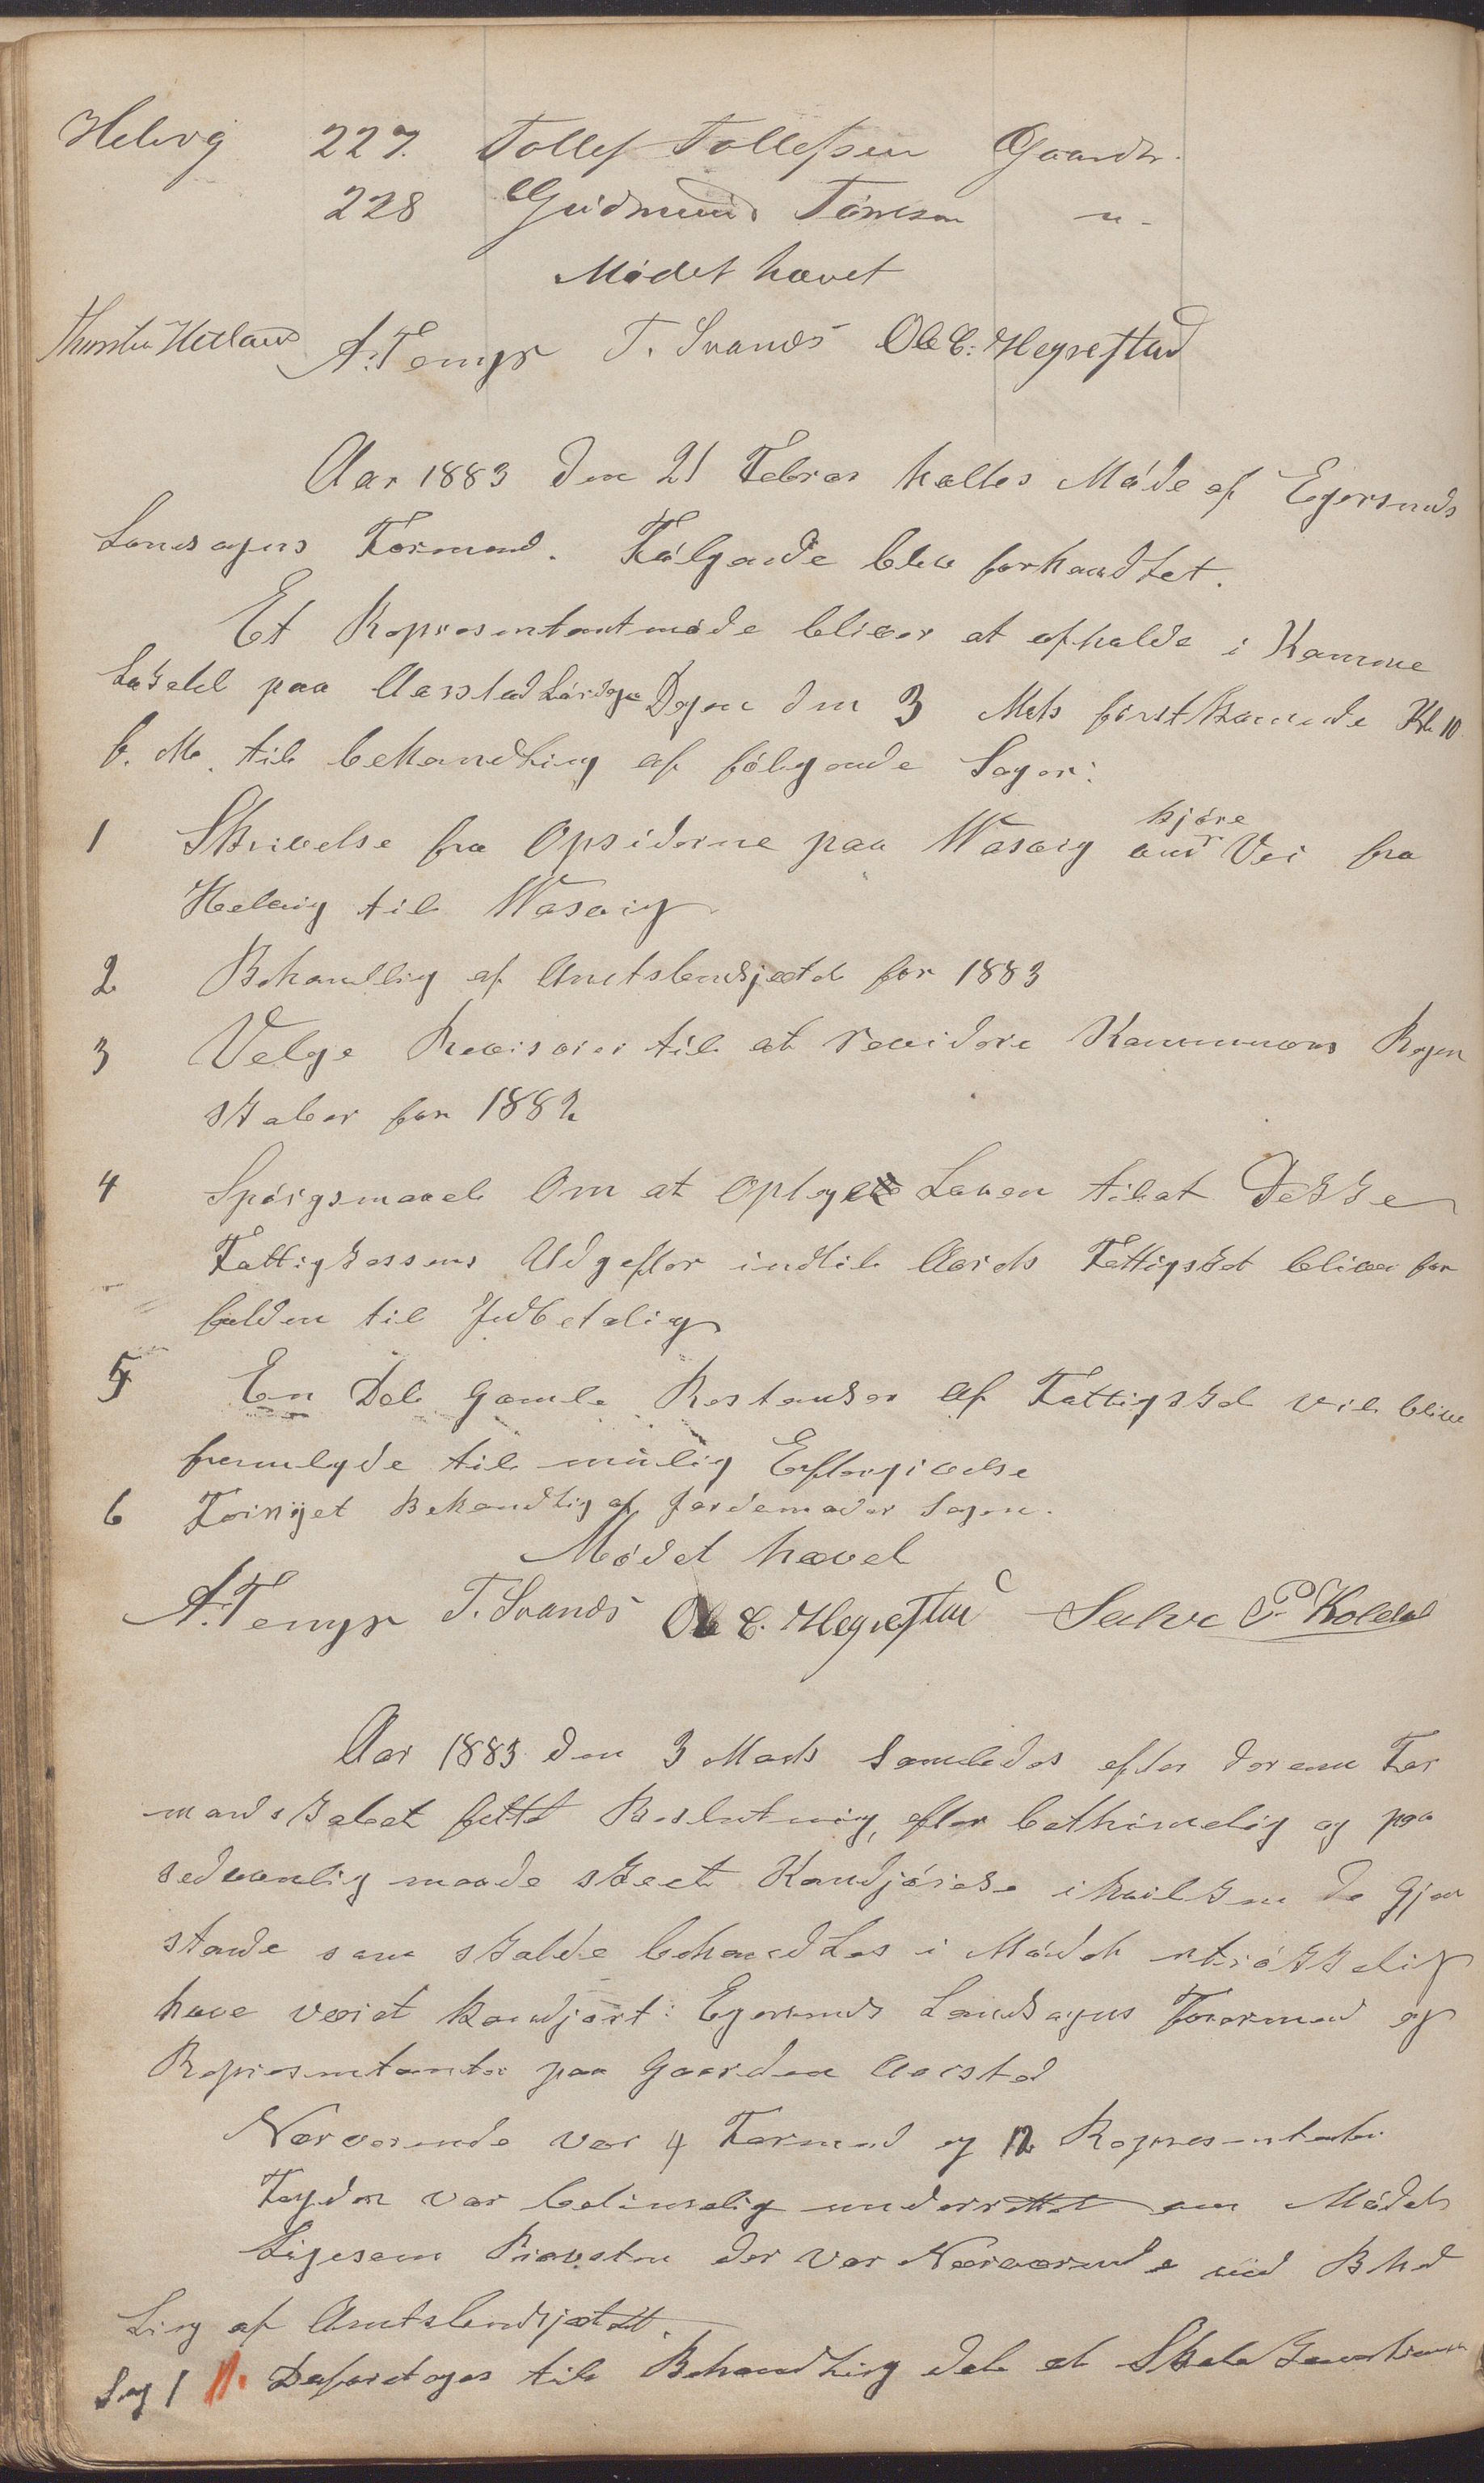 Helvig 227. Tollef Tollefsen Gaardb.
228 Gudmund Tönnesen "-
Mödet hævet
Thorstein Hetland A. Tengs T. Svanes Ole C. Hegrestad
Aar 1883 den 21 Febrar holtes Möde af Egersunds
Landsogns Formend. Fölgende blev forhandlet.
Et Representantmöde bliver at afholde i Kommune
Lokalet paa Aarstad Lördage Dagen den 3 Mats förstkomende Kl 10
f. M. til behandling af fölgende Sager:
1 Skrivelse fra Opsiderne paa Waavig om kjöre Vei fra
Helvig til Waavig
2 Behandling af Amtsbudsjettet for 1883
3 Velge Revisorer til at revidere Kommunens Regn
skaber for 1882
4 Spörgsmaal Om at Optage Laaen til at Dekke
Fattigkassens Udgefter indtil Aarets Fattigskat bliver for
falden til Indbetaling
5 En Del Gamle Restanser af Fattigskat vil blive
fremlagde til mulig Eftergivelse
6 Fornyet Behandling af Jordemoder Sagen.
Mödet hævet
A. Tengs T. Svanes Ole C. Hegrestad Salve P. Koldal
Aar 1883 den 3 Marts samledes efter derom For
mandskabet fattet Beslutning, efter bethimelig og paa
sedvanlig maade skeet Kundjörelse i hvilken de Gjen
stande som skulde behandles i Mödet utrökkelig
have været kundjort: Egersunds Landsogns Formend og
Representanter paa Gaarden Aarstad
Nærverende var 4 Formend og 12 Representanter
Fogden var betimelig underrettet om Mödet
Ligesom Provsten der var Nærværende ved Behand
Ling af Amtsbudsjettet.
Sag 1 1. Deforetoges til Behandling